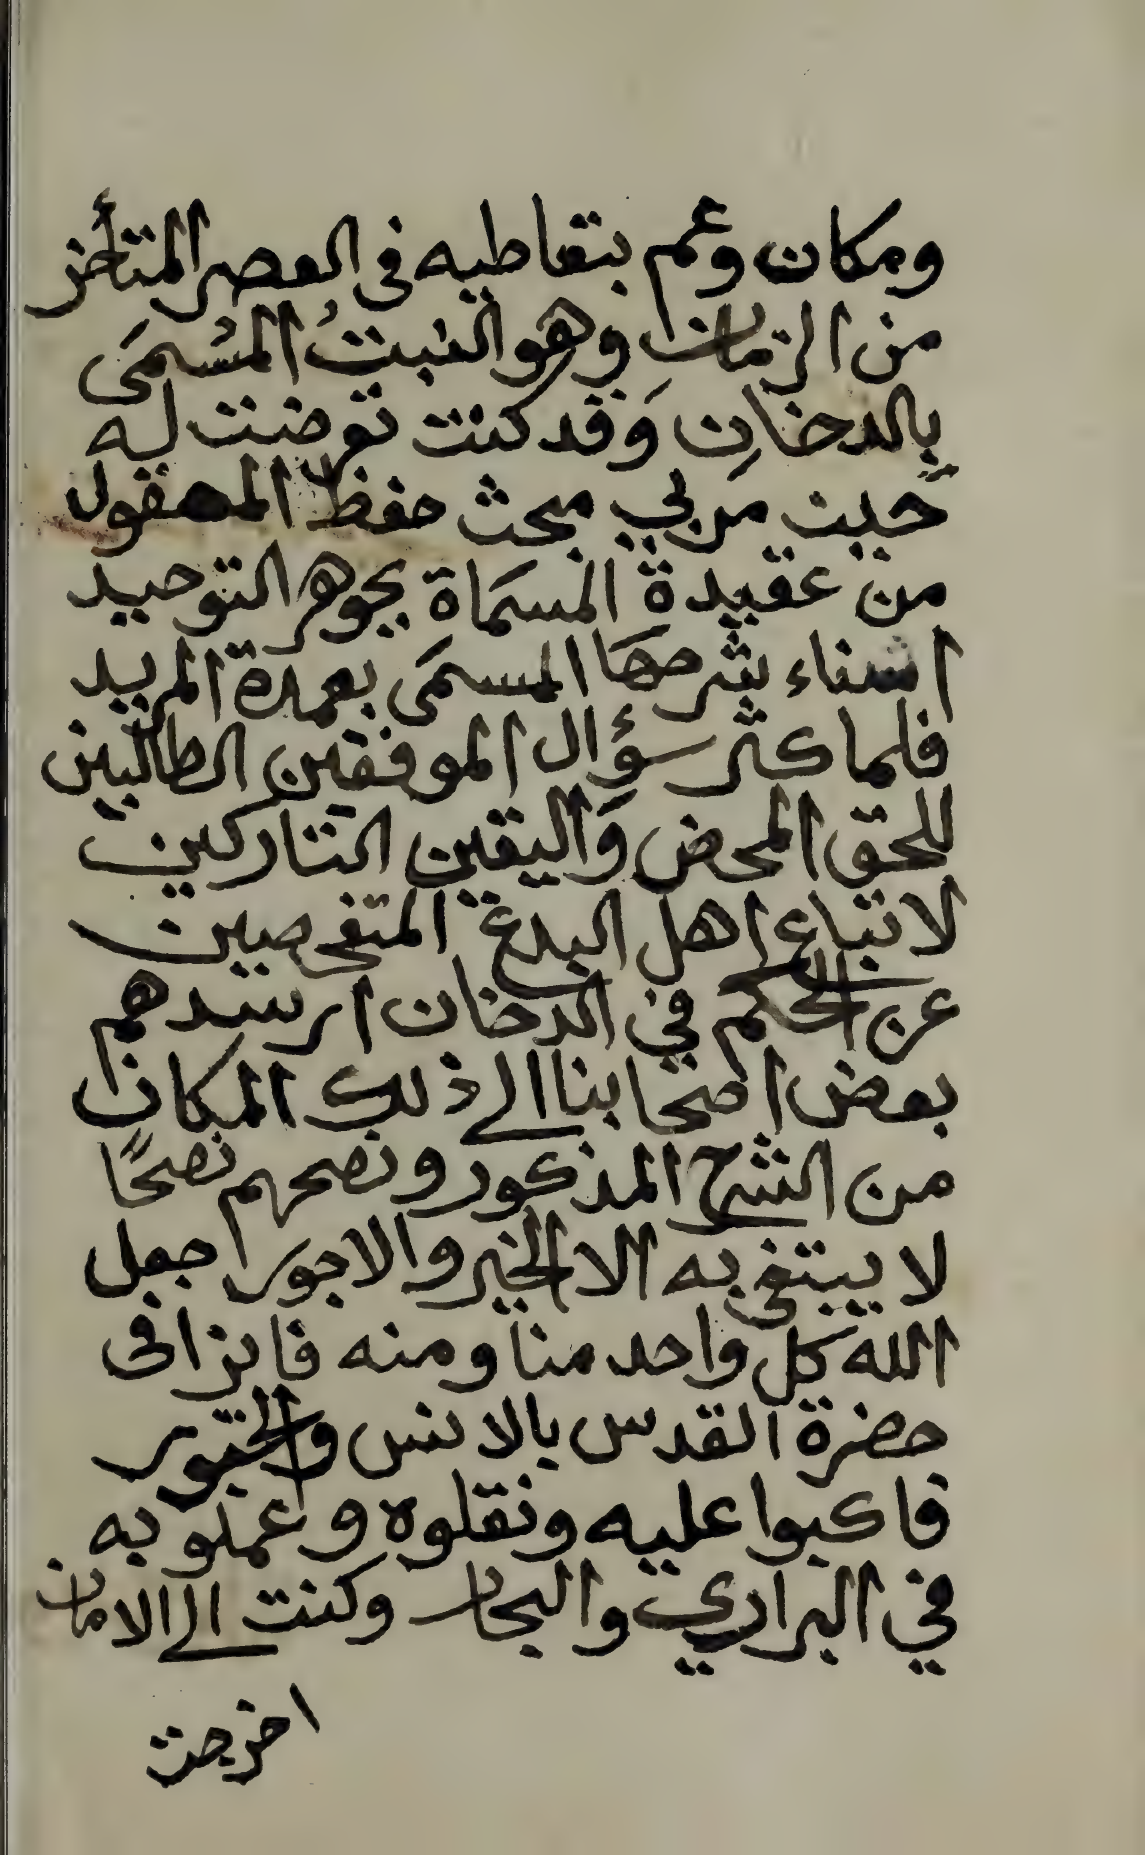 ومكان وعم بتعاطيه فى العصر المتأخر
من الزمان وهو النبتُ المُسْمَى
بالدخانِ وَقد كنت تعرضت له
حيث مر بي مبحث حفظ العقول
من عقيدة المسمَاة بجوهر التوحيد
اثناء شرحهَا المسمَى بعمدة المريد
فلما كثر سؤال الموفقين الطالبين
للحق المحض وَاليقين التاركين
لاتباع اهل البدع المتفحصين
عن الحكم في الدخان ارشدهم
بعض اصحابنا الى ذلك المكان
من الشرح المذكور ونصحهم نصحًا
لا يبتغى به الا الخير والاجور جعل
الله كل واحد منا ومنه فايزا فى
حضرة القدس بالانس والحبور
فاكبوا عليه ونقلوه وعملو به
في البراري والبحار وكنت الى الامان
اخرجت